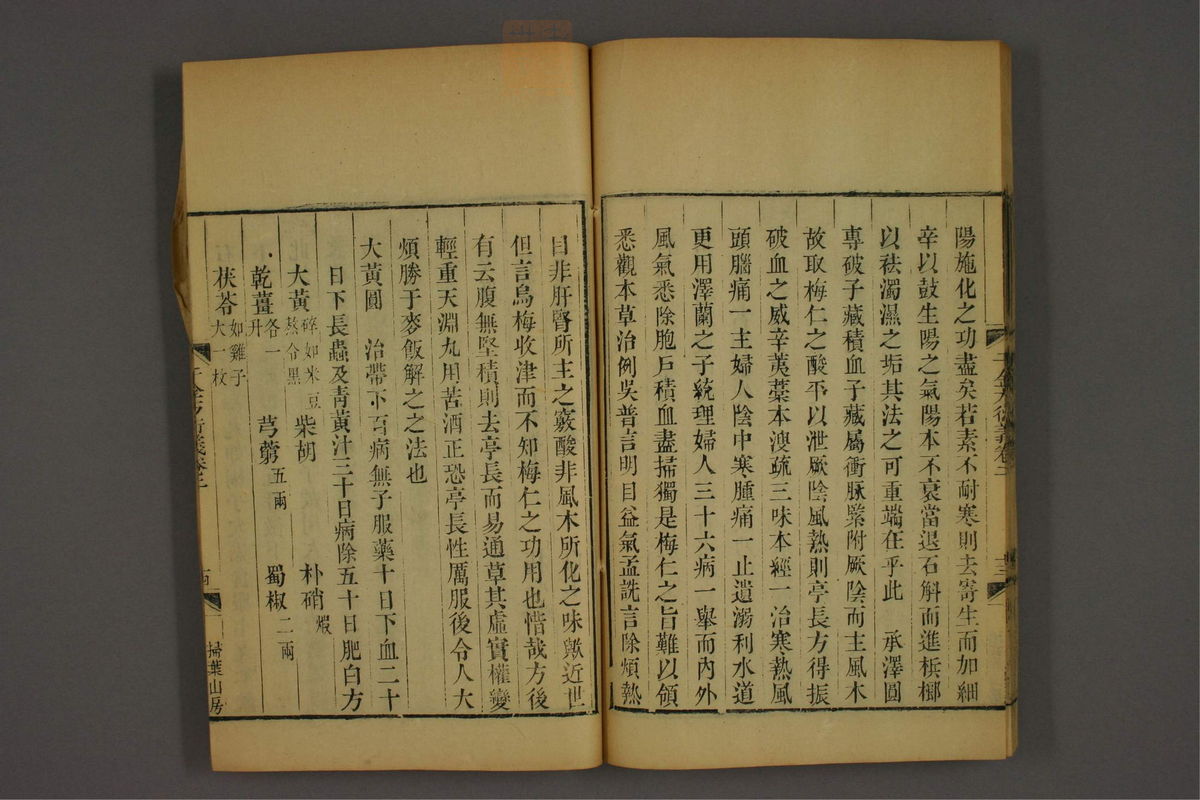 陽施化之功盡矣若素不耐寒則去寄生而加細
辛以鼓生陽之氣陽本不衰當退石斛而進梹榔
以祛濁濕之垢其法之可重端在乎此　承澤圓
專破子藏積血子藏屬衝脉緊附厥陰而主風木
故取梅仁之酸平以泄厥陰風熱則亭長方得振
破血之威辛荑藁本溲疏三味本經一治寒熱風
頭腦痛一主婦人陰中寒腫痛一止遺溺利水道
更用澤蘭之子統理婦人三十六病一舉而內外
風氣悉除胞戶積血盡掃獨是梅仁之旨難以領
悉觀本草治例吳普言明目益氣孟詵言除煩熱
目非肝腎所主之竅酸非風木所化之味歟近世
但言烏梅收津而不知梅仁之功用也惜哉方後
有云腹無堅積則去亭長而易通草其虛實權變
輕重天淵丸用苦酒正恐亭長性厲服後令人大
煩勝于麥飯解之之法也
大黃圓　治帶下百病無子服藥十日下血二十
日下長蟲及青黃汁三十日病除五十日肥白方
大黃碎如米豆熬令黑　柴胡　朴硝煆
乾薑各一升　芎藭五兩　蜀椒二兩
茯苓如雞子大一枚
千金方衍義卷二
十三
掃葉山房